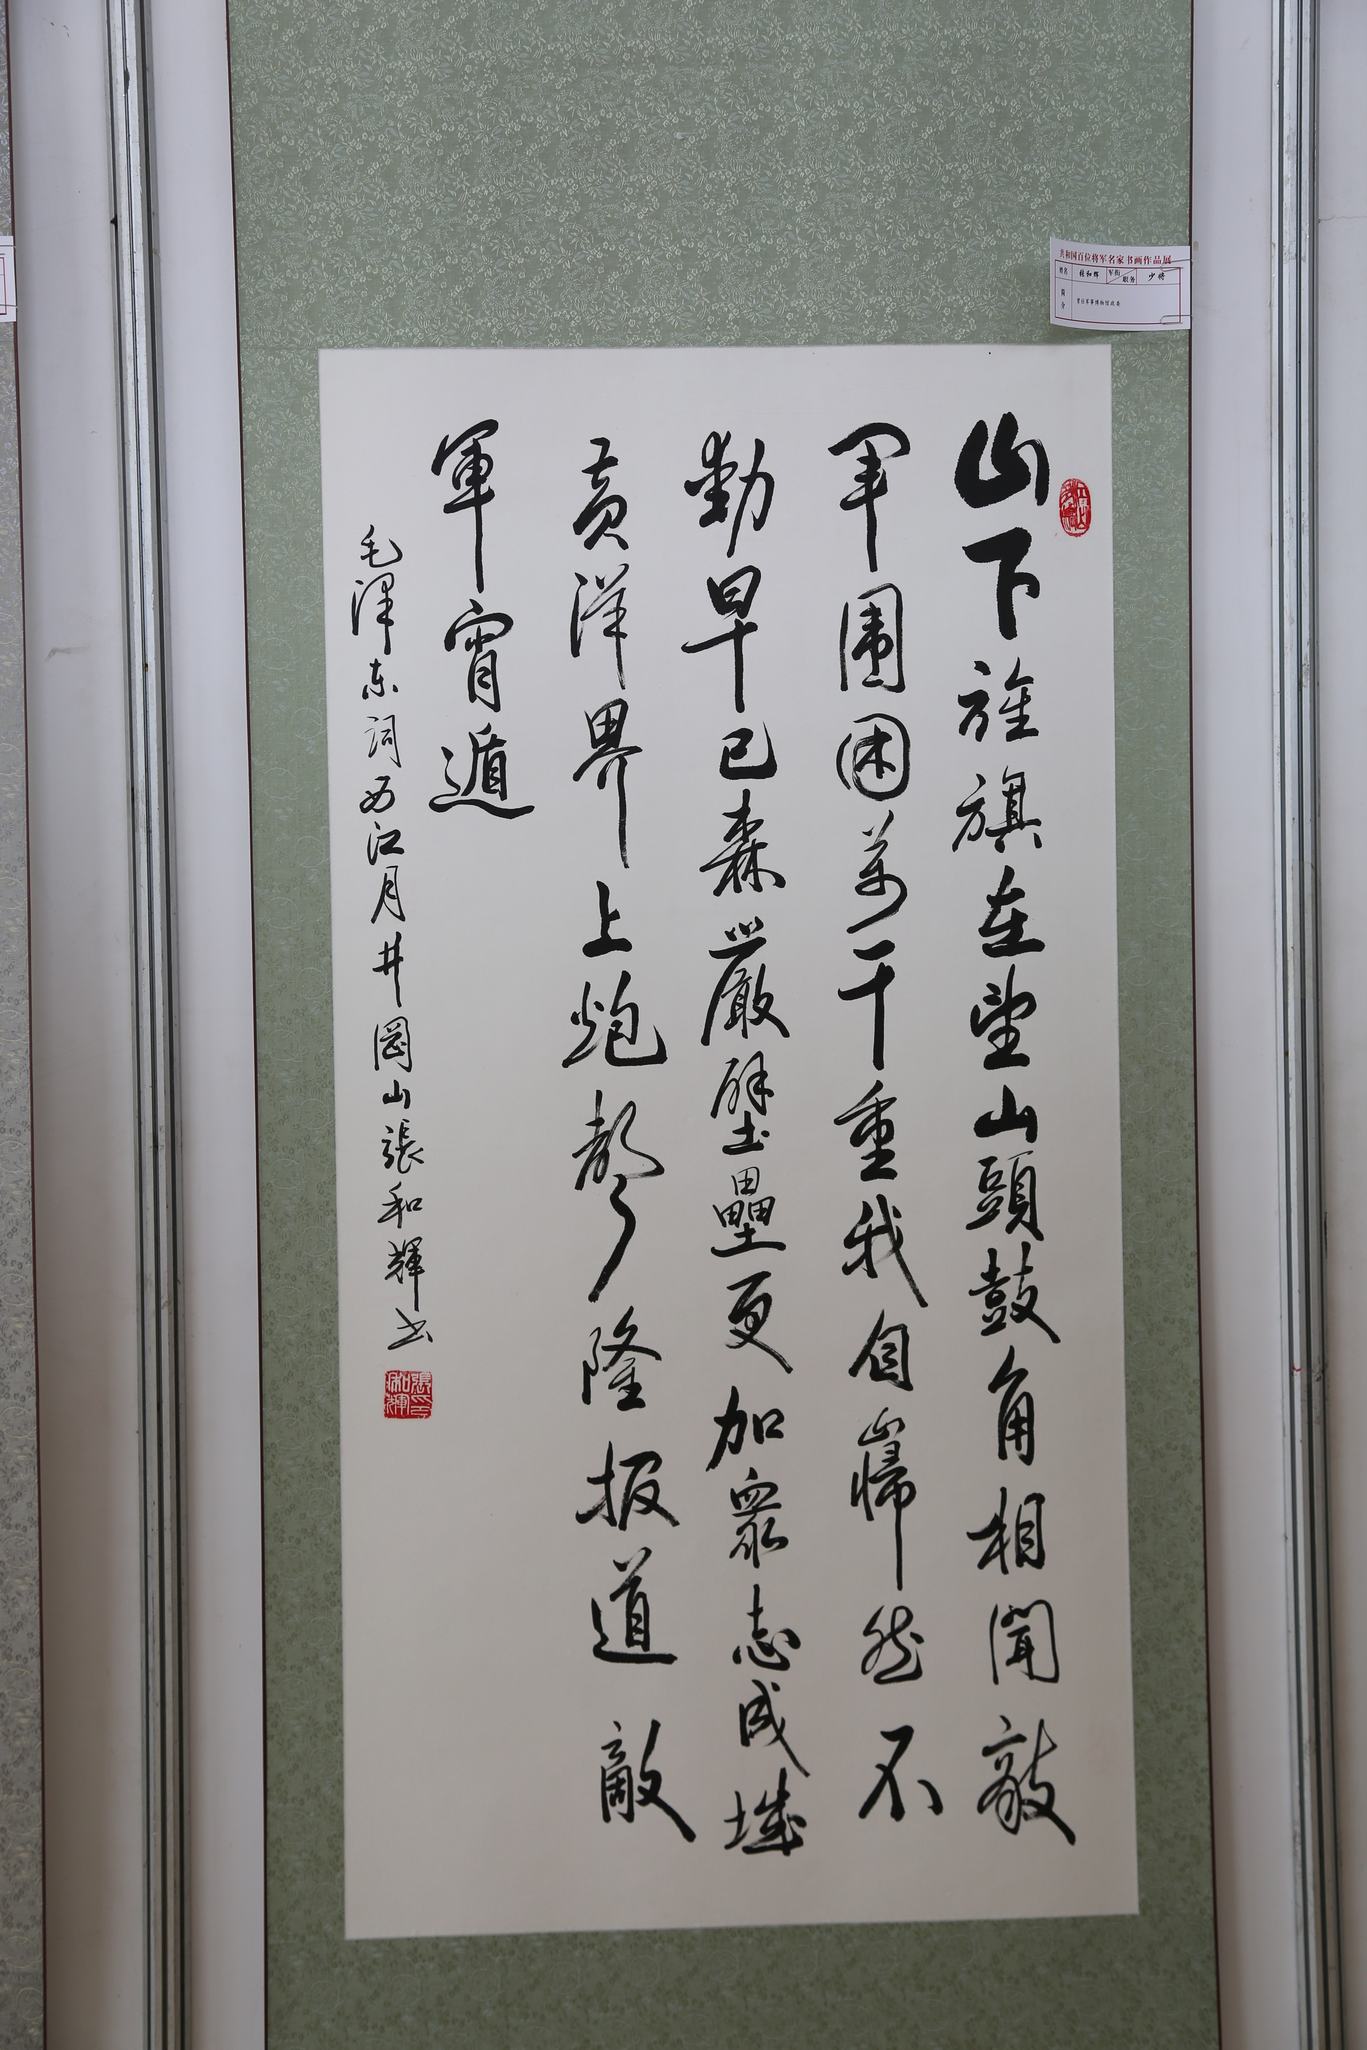 共和国百位将军名家书画作品展
姓名 张和辉 军衔 职务 少将
简介 曾任军事博物馆政委
山下旌旗在望山頭鼓角相聞敵
軍圍困萬千重我自巋然不
動早已森嚴壁壘更加衆志成城
黄洋界上炮聲隆报道敵
軍宵遁
毛澤东詞西江月井岡山張和輝书
張和輝印